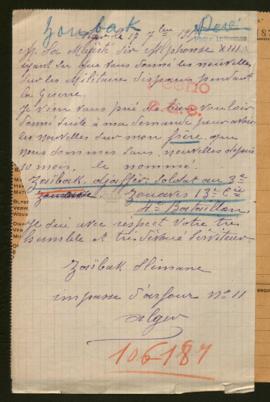 Zouibak
Alger le 13 7bre
A. Sa Majesté Sir Alphonse XIII
ayant su que vous donné les nouvelles
sur les Militaires disparus pendant
la Guerre.
Je vien vous prié de vouloir
donné suite à ma demande pour avoir
les nouvelles sur mon frère que
nous sommes sans nouvelles depuis
10 mois, le nommé.
Zoïbak, djaffer soldat au 3e
Zouaves 13e Cie
4e Bataillon
Je suis avec respect Votre très
humble et très dévoué serviteur
Zoïbak Slimane
impasse d'asfour No 11
Alger
106187